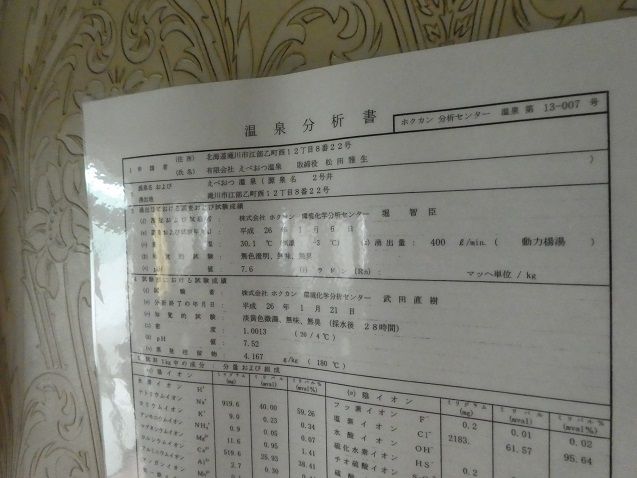 温泉分析書
ホクカン 分析センター 温泉 第 13-007 号
1 申請者 (住所) 北海道滝川市江部乙町西12丁目8番22号
(氏名) 有限会社 えべおつ温泉 取締役 松田 雅生
源泉名 および えべおつ 温泉 ( 源泉名 2号井 )
湧出地 滝川市江部乙町西12丁目8番22号
株式会社 ホクカン 環境化学分析センター 堀 智臣
平成 26年 1月 6日
30.1 ℃ -3℃) 湧出量: 400 ℓ/min. ( 動力揚湯 )
無色澄明、無味、無臭
pH 値: 7.6 ラドン (Rn): マッヘ単位 / kg
試験室における試験成績
株式会社 ホクカン 環境化学分析センター 武田 直樹
分析終了の年月日: 平成 26年 1月 21日
知覚的試験: 淡黄色微濁、無味、無臭 (採水後 28時間)
密度: 1.0013 (20/4℃)
pH 値: 7.52
蒸発残留物: 4.167 g/kg (180℃)
分量および組成
陽イオン ミリグラム (mg) ミリバル (mval) ミリバル% (mval%)
陰イオン ミリグラム (mg) ミリバル (mval) ミリバル% (mval%)
水素イオン H⁺
フッ素イオン F⁻ 0.2 0.01 0.02
ナトリウムイオン Na⁺ 919.6 40.00 59.26
塩素イオン Cl⁻ 2183. 61.57 95.64
カリウムイオン K⁺ 9.0 0.23 0.34
水酸イオン OH⁻
アンモニウムイオン NH₄⁺ 0.9 0.05 0.07
硫化水素イオン HS⁻ 0.2
マグネシウムイオン 11.6 0.95 1.41
チオ硫酸イオン
カルシウムイオン 519.6 25.93 38.41
アルミニウムイオン 2.7 0.30
マンガンイオン